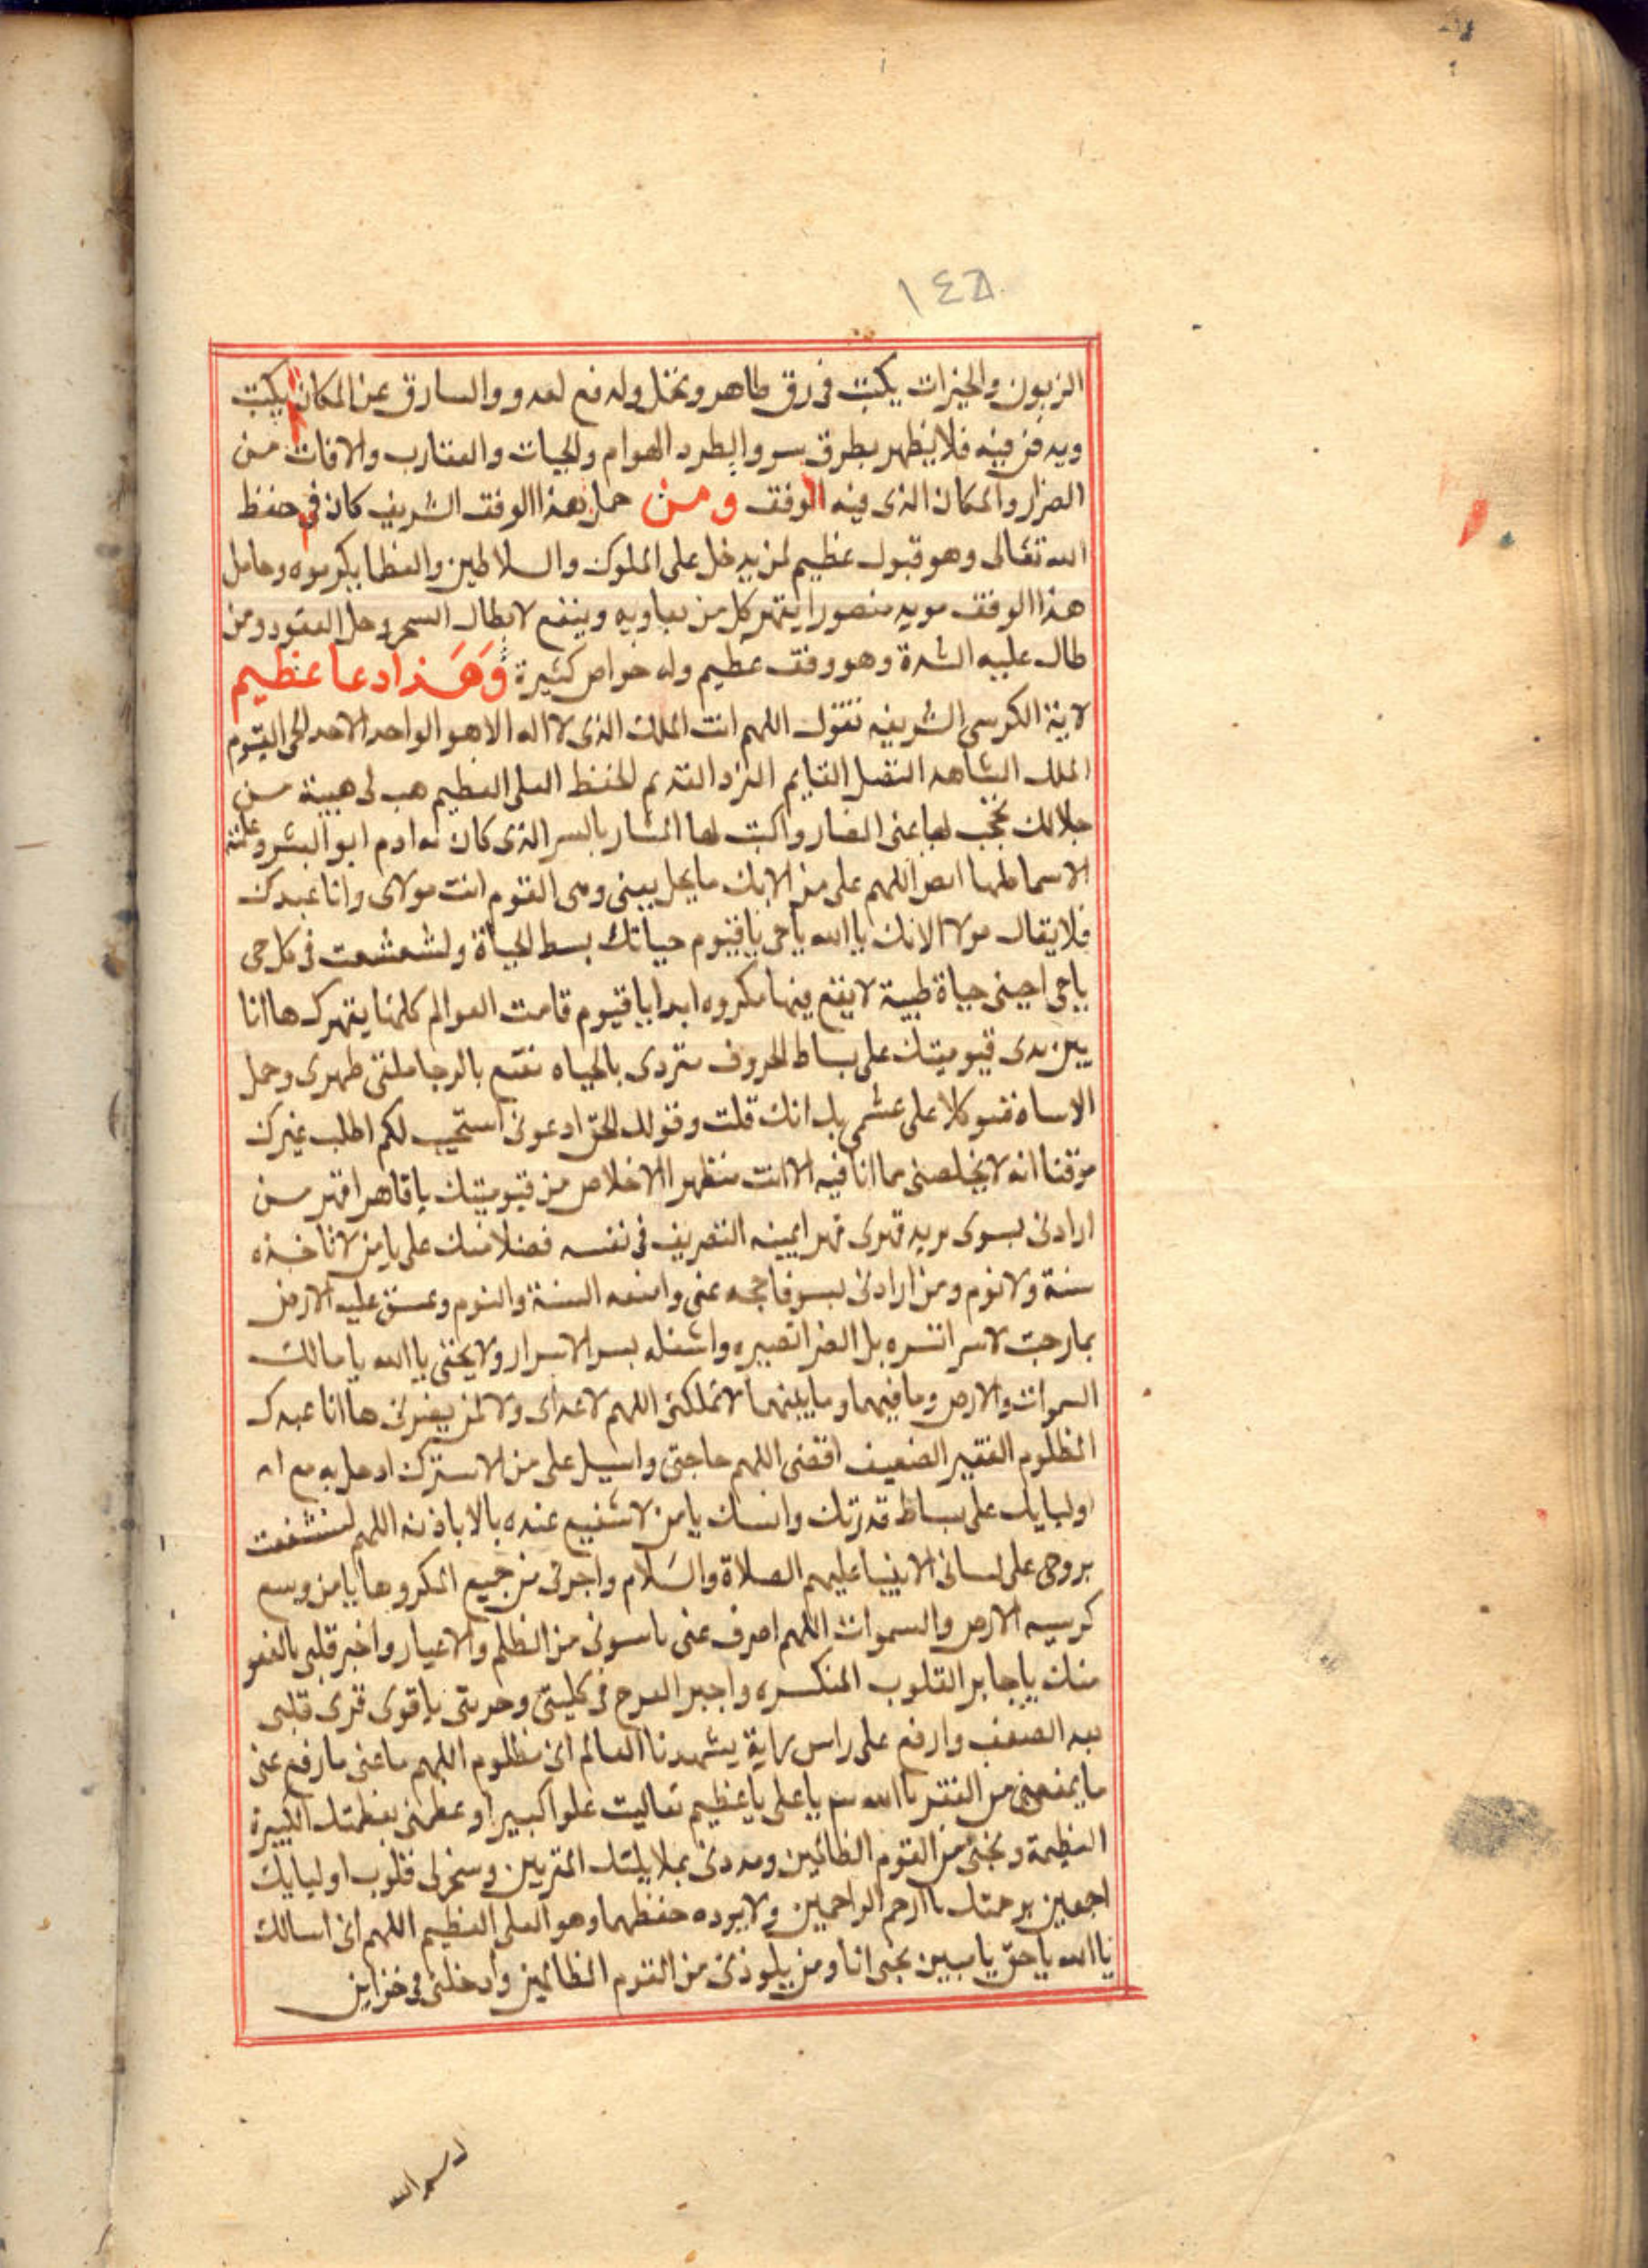 ١٤٨
الزبون والخيرات يكتب فى رق طاهر وتحمل وله فع لعدو والسارق عن المكان يكتب
ويدفن فيه فلا يظهر بطرق سو وابطرد الهوام والحيات والعقارب والافات من
الضرار والمكان الذى فيه الوفق ومن حمل هذا الوفق الشريف كان فى حفظ
الله تعالى وهو قبول عظيم لمن يدخل على الملوك والسلاطين والعظا يكرموه وحامل
هذا الوفق مويد منصورا يقهر كل من يعاديه وينفع لابطال السحر وحل العقود ومن
طال عليه الشدة وهو وفق عظيم وله خواص كثيرة وَهَذا دعا عظيم
لاية الكرسى الشريفه تقول اللهم انت الملك الذى لا اله الا هو الواحد الاحد الحى القيوم
الملك الشاهد القايم الفرد القديم الحفظ العلى العظيم هب لى هيبة من
جلالك تحجب لها عنى الضار واكبت لها المشار بالسر الذى كان به ادم ابو البشر وعلمته
الاسما كلها اللهم على من الابك ما يحل بينى وبين القوم انت مولاى وانا عبدك
فلا يقال مولا الا لك يا الله يا حى يا قيوم حياتك بسط الحياة ولشعشعت فى كل حى
يا حى احينى حياة طيبة لا يقع فيها مكروه ابدا يا قيوم قامت العوالم كلها بقهرك ها انا
بين يدى قيوميتك على بساط الحروف متردى بالحياه نقنع بالرجا ملتى ظهرى وحمل
الاساة كلا على عشمى بك انك قلت وقولك الحق ادعونى استجيب لكم اطلب غيرك
موقنا انه لا يخلصنى مما انا فيه الا انت منظهرا الاخلاص من قيوميتك يا قاهر اقهر من
ارادنى بسوى يريد قهرى قهرا يمينه التصريف فى نفسه فضلا منك على يا من لا تاخذه
سنة ولا نوم ومن ارادنى بسو فاحجبه عنى وامنعه السنة والنوم وعسق عليه الارض
بما رحبت لاسر انسره بل الضر اتصبيره واشغله بسر الاسرار ولا يخفى يا الله يا مالك
السموات والارض وما فيهما وما بينهما لا تملكنى اللهم لاعداى ولا لمن يضرنى ها انا عبدك
المظلوم الفقير الضعيف اقضى اللهم حاجتى واسبل على من الاسترك ادخل به مع
اوليايك على بساط قدرتك وانسك يا من لا شفيع عنده بالا باذنه اللهم لتشفعت
بروحى على لسانى الانبيا عليهم الصلاة والسَلام واجرنى من جميع المكروها يا من وسع
كرسيه الارض والسموات اللهم اصرف عنى ما سونى من الظلم والاغيار واخبر قلبى بالعفو
منك يا جابر القلوب المنكسره واجبر الفرح فى كليتى وحريتى يا قوى قوى قلبى
بعد الضعف وارفع على راس راية يشهدنا العالم انى مظلوم اللهم ما عنى ما رفع عنى
ما يمنعنى من الفقر يا الله يا على يا عظيم تعاليت علوا كبيرا وعظمنى بعظمتك الكبيرة
العظيمة ونجنى من القوم الظالمين ومددنى بملايكتك المقربين وسخر لى قلوب اوليايك
اجمعين برحمتك يا ارحم الراحمين ولا يوده حفظهما وهو العلى العظيم اللهم انى اسالك
يا الله يا حق يا مبين نجنى انا ومن يلوذنى من القوم الظالمين وادخلنى فى خزاين